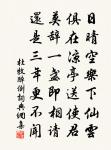 日晴空樂下仙雲
俱在涼亭送使君
美辭一盞即相請
還是三年更不聞
杜牧醉倒詞典網集